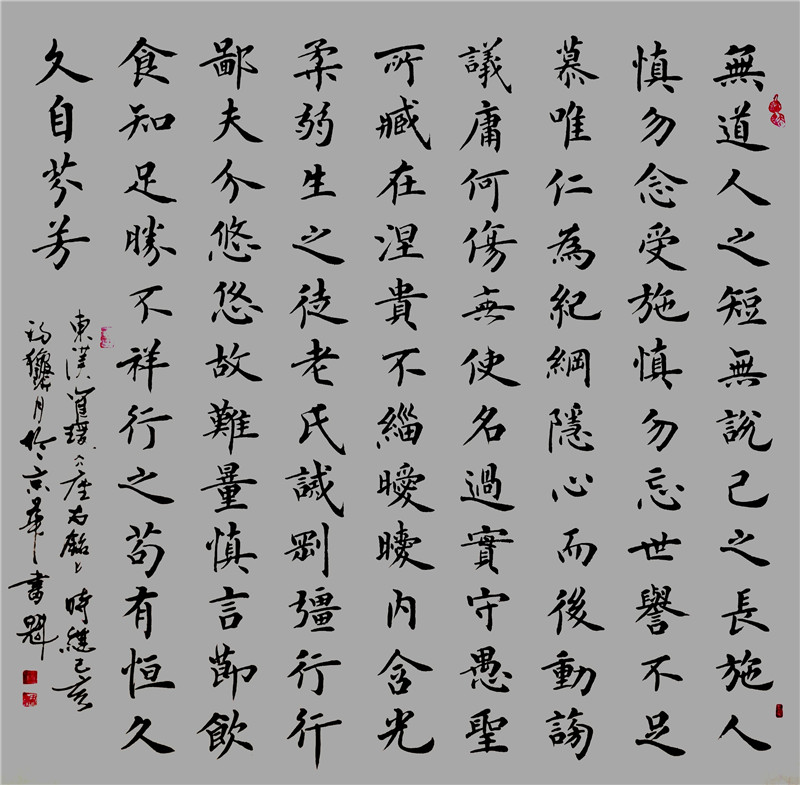 無道人之短無說己之長施人
慎勿念受施慎勿忘世譽不足
慕唯仁為紀綱隱心而後動謗
議庸何傷無使名過實守愚聖
所臧在涅貴不緇曖曖內含光
柔弱生之徒老氏誡剛彊行行
鄙夫介悠悠故難量慎言節飲
食知足勝不祥行之苟有恒久
久自芬芳
東漢崔瑗座右銘 時 己亥
月於京華書